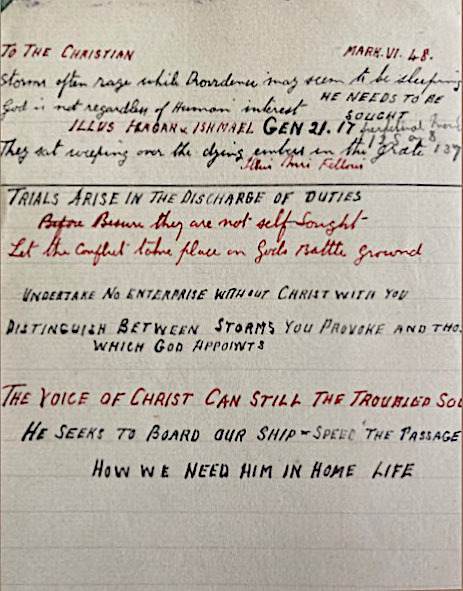 TO THE CHRISTIAN MARK. VI. 48.
Storms often rage while Providence may seem to be sleeping
God is not regardless of Human interest HE NEEDS TO BE
SOUGHT
ILLUS HAGAR & ISHMAEL GEN 21. 17 perpetual
They sat weeping over the dying embers in the grate 137
Illus Fellows
TRIALS ARISE IN THE DISCHARGE OF DUTIES
Before Besure they are not self Sought
Let the Conflict take place on Gods Battle ground
UNDERTAKE NO ENTERPRISE WITHOUT CHRIST WITH YOU
DISTINGUISH BETWEEN STORMS YOU PROVOKE AND THOS
WHICH GOD APPOINTS
THE VOICE OF CHRIST CAN STILL THE TROUBLED SOU
HE SEEKS TO BOARD OUR SHIP - SPEED THE PASSAGE
HOW WE NEED HIM IN HOME LIFE